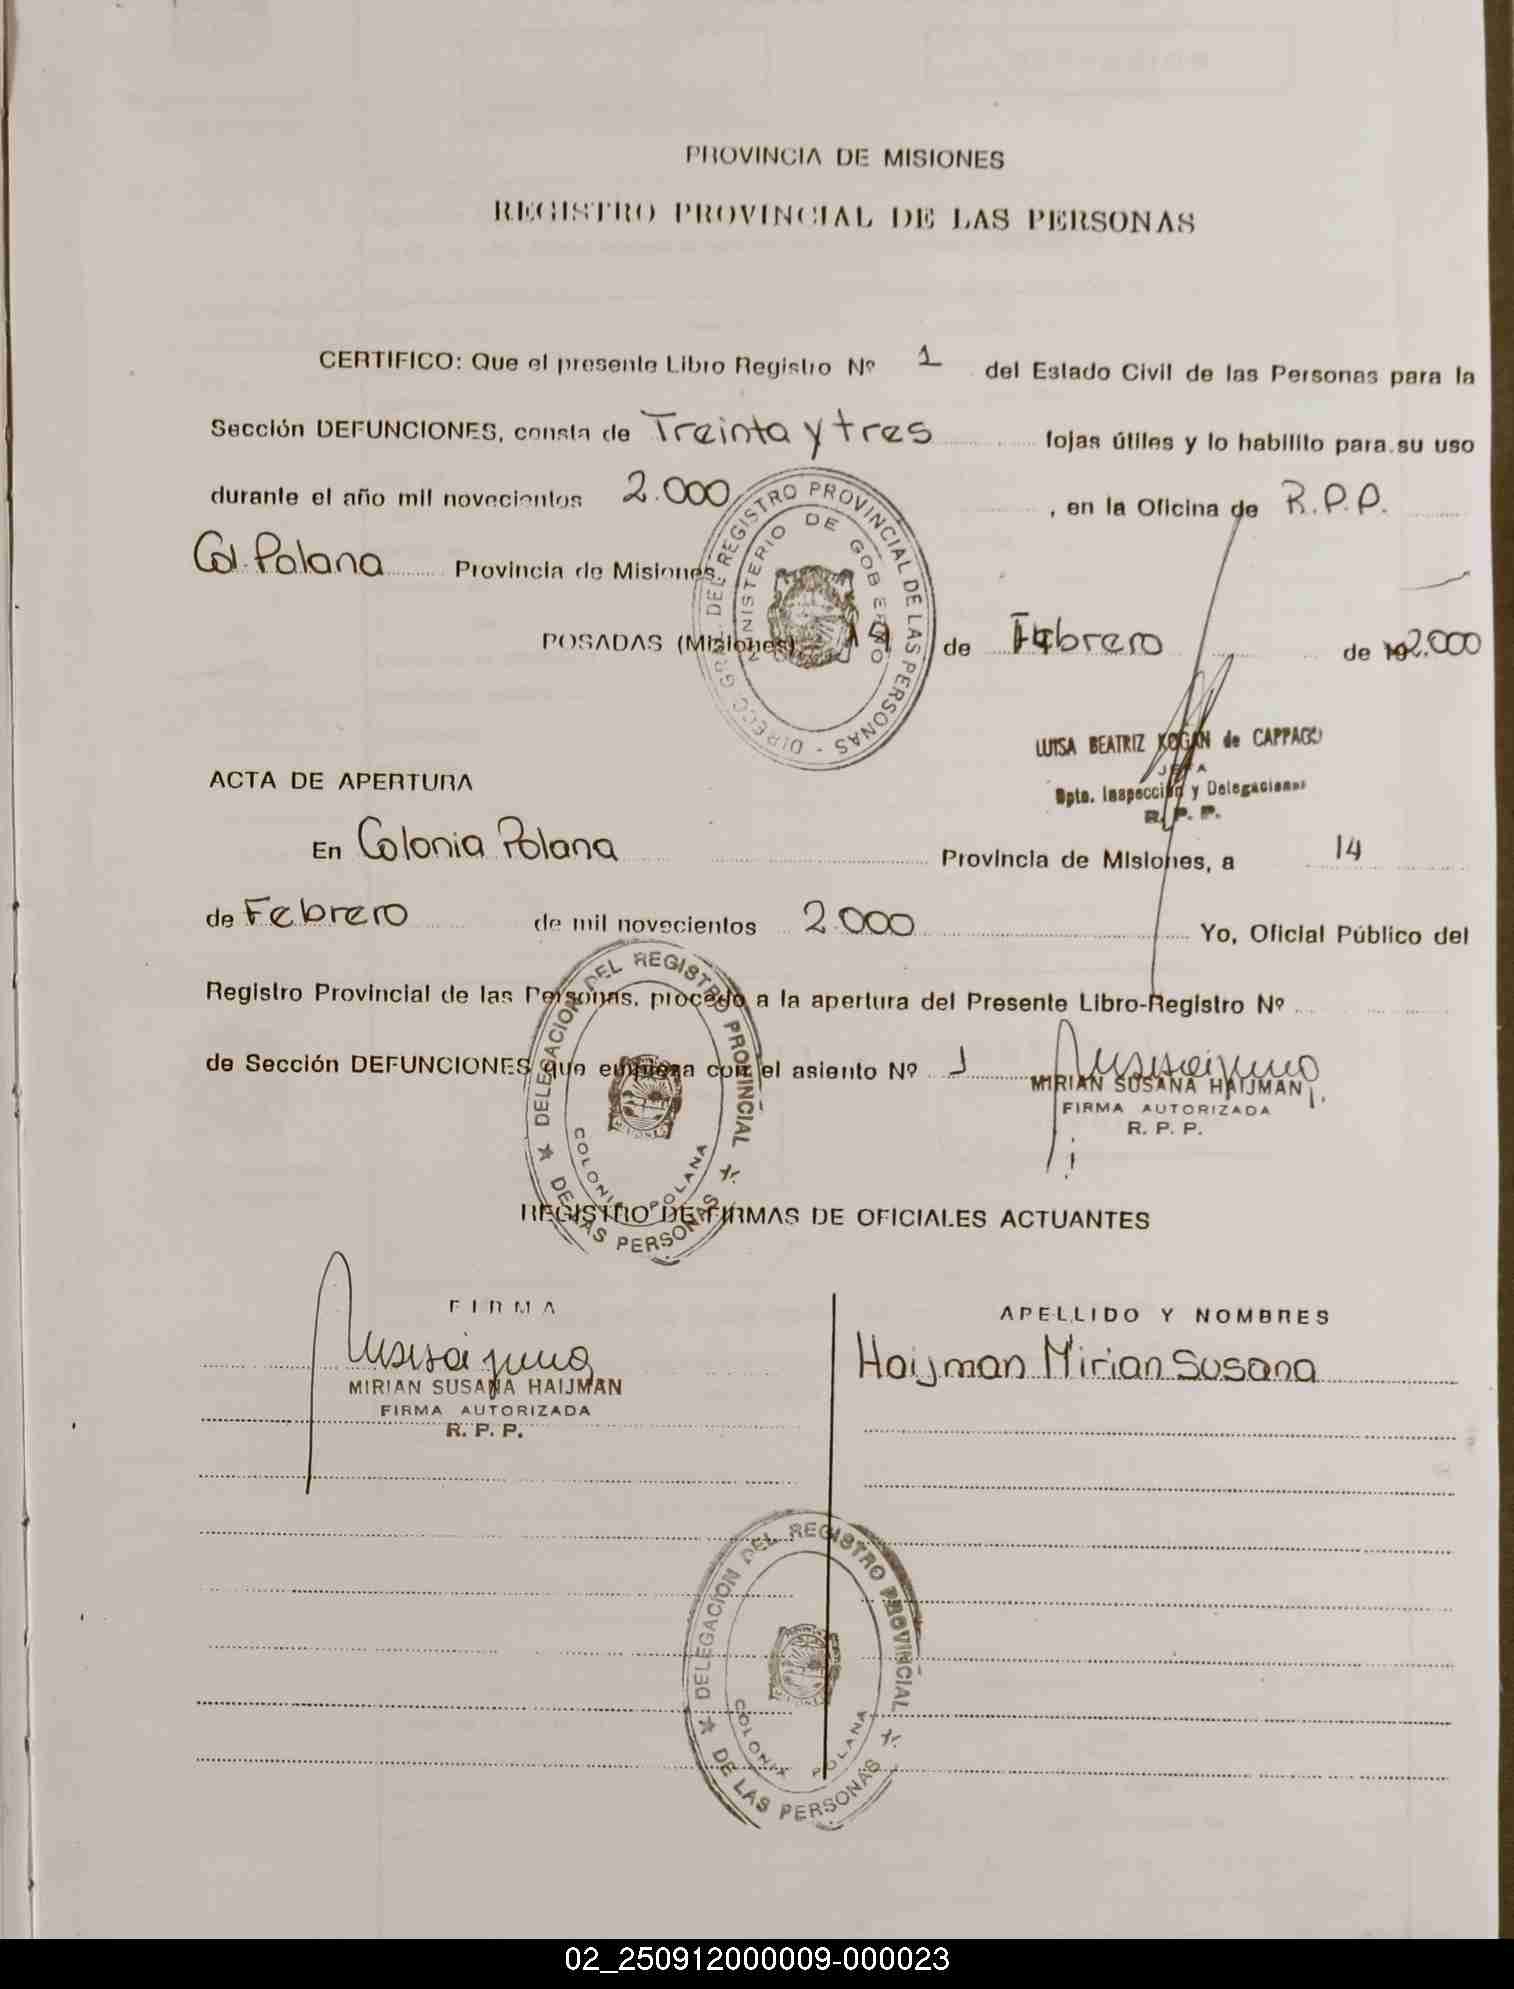 PROVINCIA DE MISIONES
REGISTRO PROVINCIAL DE LAS PERSONAS
CERTIFICO: Que el presente Libro Registro Nº 1 del Estado Civil de las Personas para la
Sección DEFUNCIONES, consta de Treinta y tres fojas útiles y lo habilito para su uso
durante el año mil novecientos 2.000, en la Oficina de R.P.P.
Col. Polana Provincia de Misiones.
DIRECC. GRAL. DEL REGISTRO PROVINCIAL DE LAS PERSONAS -
MINISTERIO DE GOBIERNO
POSADAS (Misiones), de Febrero de 192.000
LUISA BEATRIZ KOGAN de CAPPAGO
JEFA
Dpto. Inspección y Delegaciones
R. P. P.
ACTA DE APERTURA
En Colonia Polana Provincia de Misiones, a 14
de Febrero de mil novecientos 2.000 Yo, Oficial Público del
Registro Provincial de las Personas, procedo a la apertura del Presente Libro-Registro Nº
de Sección DEFUNCIONES que empieza con el asiento Nº 1
MIRIAN SUSANA HAIJMAN
FIRMA AUTORIZADA
R. P. P.
DELEGACION DEL REGISTRO PROVINCIAL DE LAS PERSONAS
COLONIA POLANA
REGISTRO DE FIRMAS DE OFICIALES ACTUANTES
FIRMA APELLIDO Y NOMBRES
Haijman Mirian Susana
MIRIAN SUSANA HAIJMAN
FIRMA AUTORIZADA
R. P. P.
DELEGACION DEL REGISTRO PROVINCIAL DE LAS PERSONAS
COLONIA POLANA
02_250912000009-000023